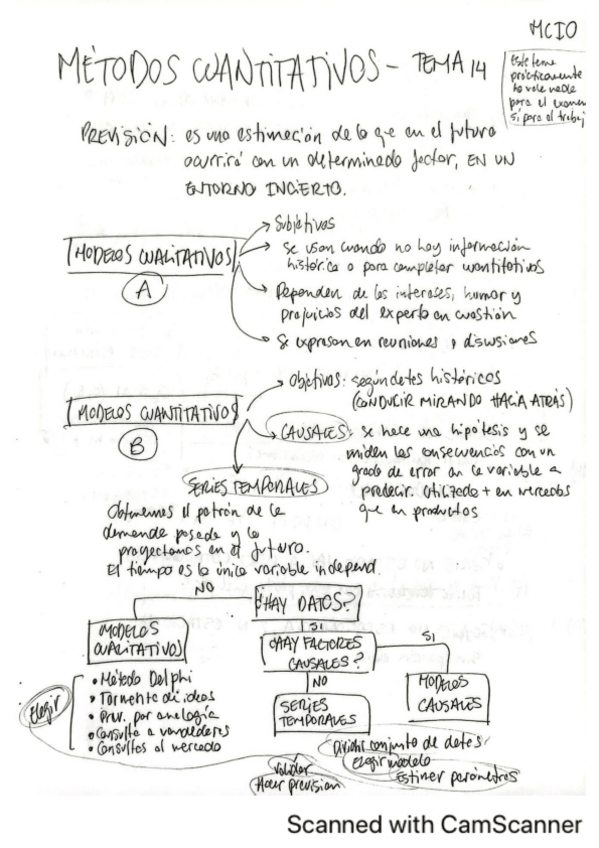 MCIO
MÉTODOS CUANTITATIVOS - TEMA 14
Este tema
prácticamente
no vale nada
para el examen
sí para el trabajo
PREVISIÓN: es una estimación de lo que en el futuro
ocurrirá con un determinado factor, EN UN
ENTORNO INCIERTO.
MODELOS CUALITATIVOS
A
→ Subjetivos
→ Se usan cuando no hay información
histórica o para completar cuantitativos
→ Dependen de los intereses, humor y
prejuicios del experto en cuestión
→ Se expresan en reuniones y discusiones
MODELOS CUANTITATIVOS
B
→ Objetivos: según datos históricos
(CONDUCIR MIRANDO HACIA ATRÁS)
→ CAUSALES: se hace una hipótesis y se
miden las consecuencias con un
grado de error en la variable a
predecir. Utilizado + en mercados
que en productos
SERIES TEMPORALES
Obtenemos el patrón de la
demanda pasada y lo
proyectamos en el futuro.
El tiempo es la única variable independ.
NO
¿HAY DATOS?
SI
MODELOS
CUALITATIVOS
¿HAY FACTORES
CAUSALES?
SI
NO
MODELOS
CAUSALES
SERIES
TEMPORALES
Elegir
• Método Delphi
• Tormenta de ideas
• Prev. por analogía
• Consulta a vendedores
• Consultas al mercado
Dividir conjunto de datos
Elegir modelo
Estimar parámetros
Validar
Hacer previsión
Scanned with CamScanner